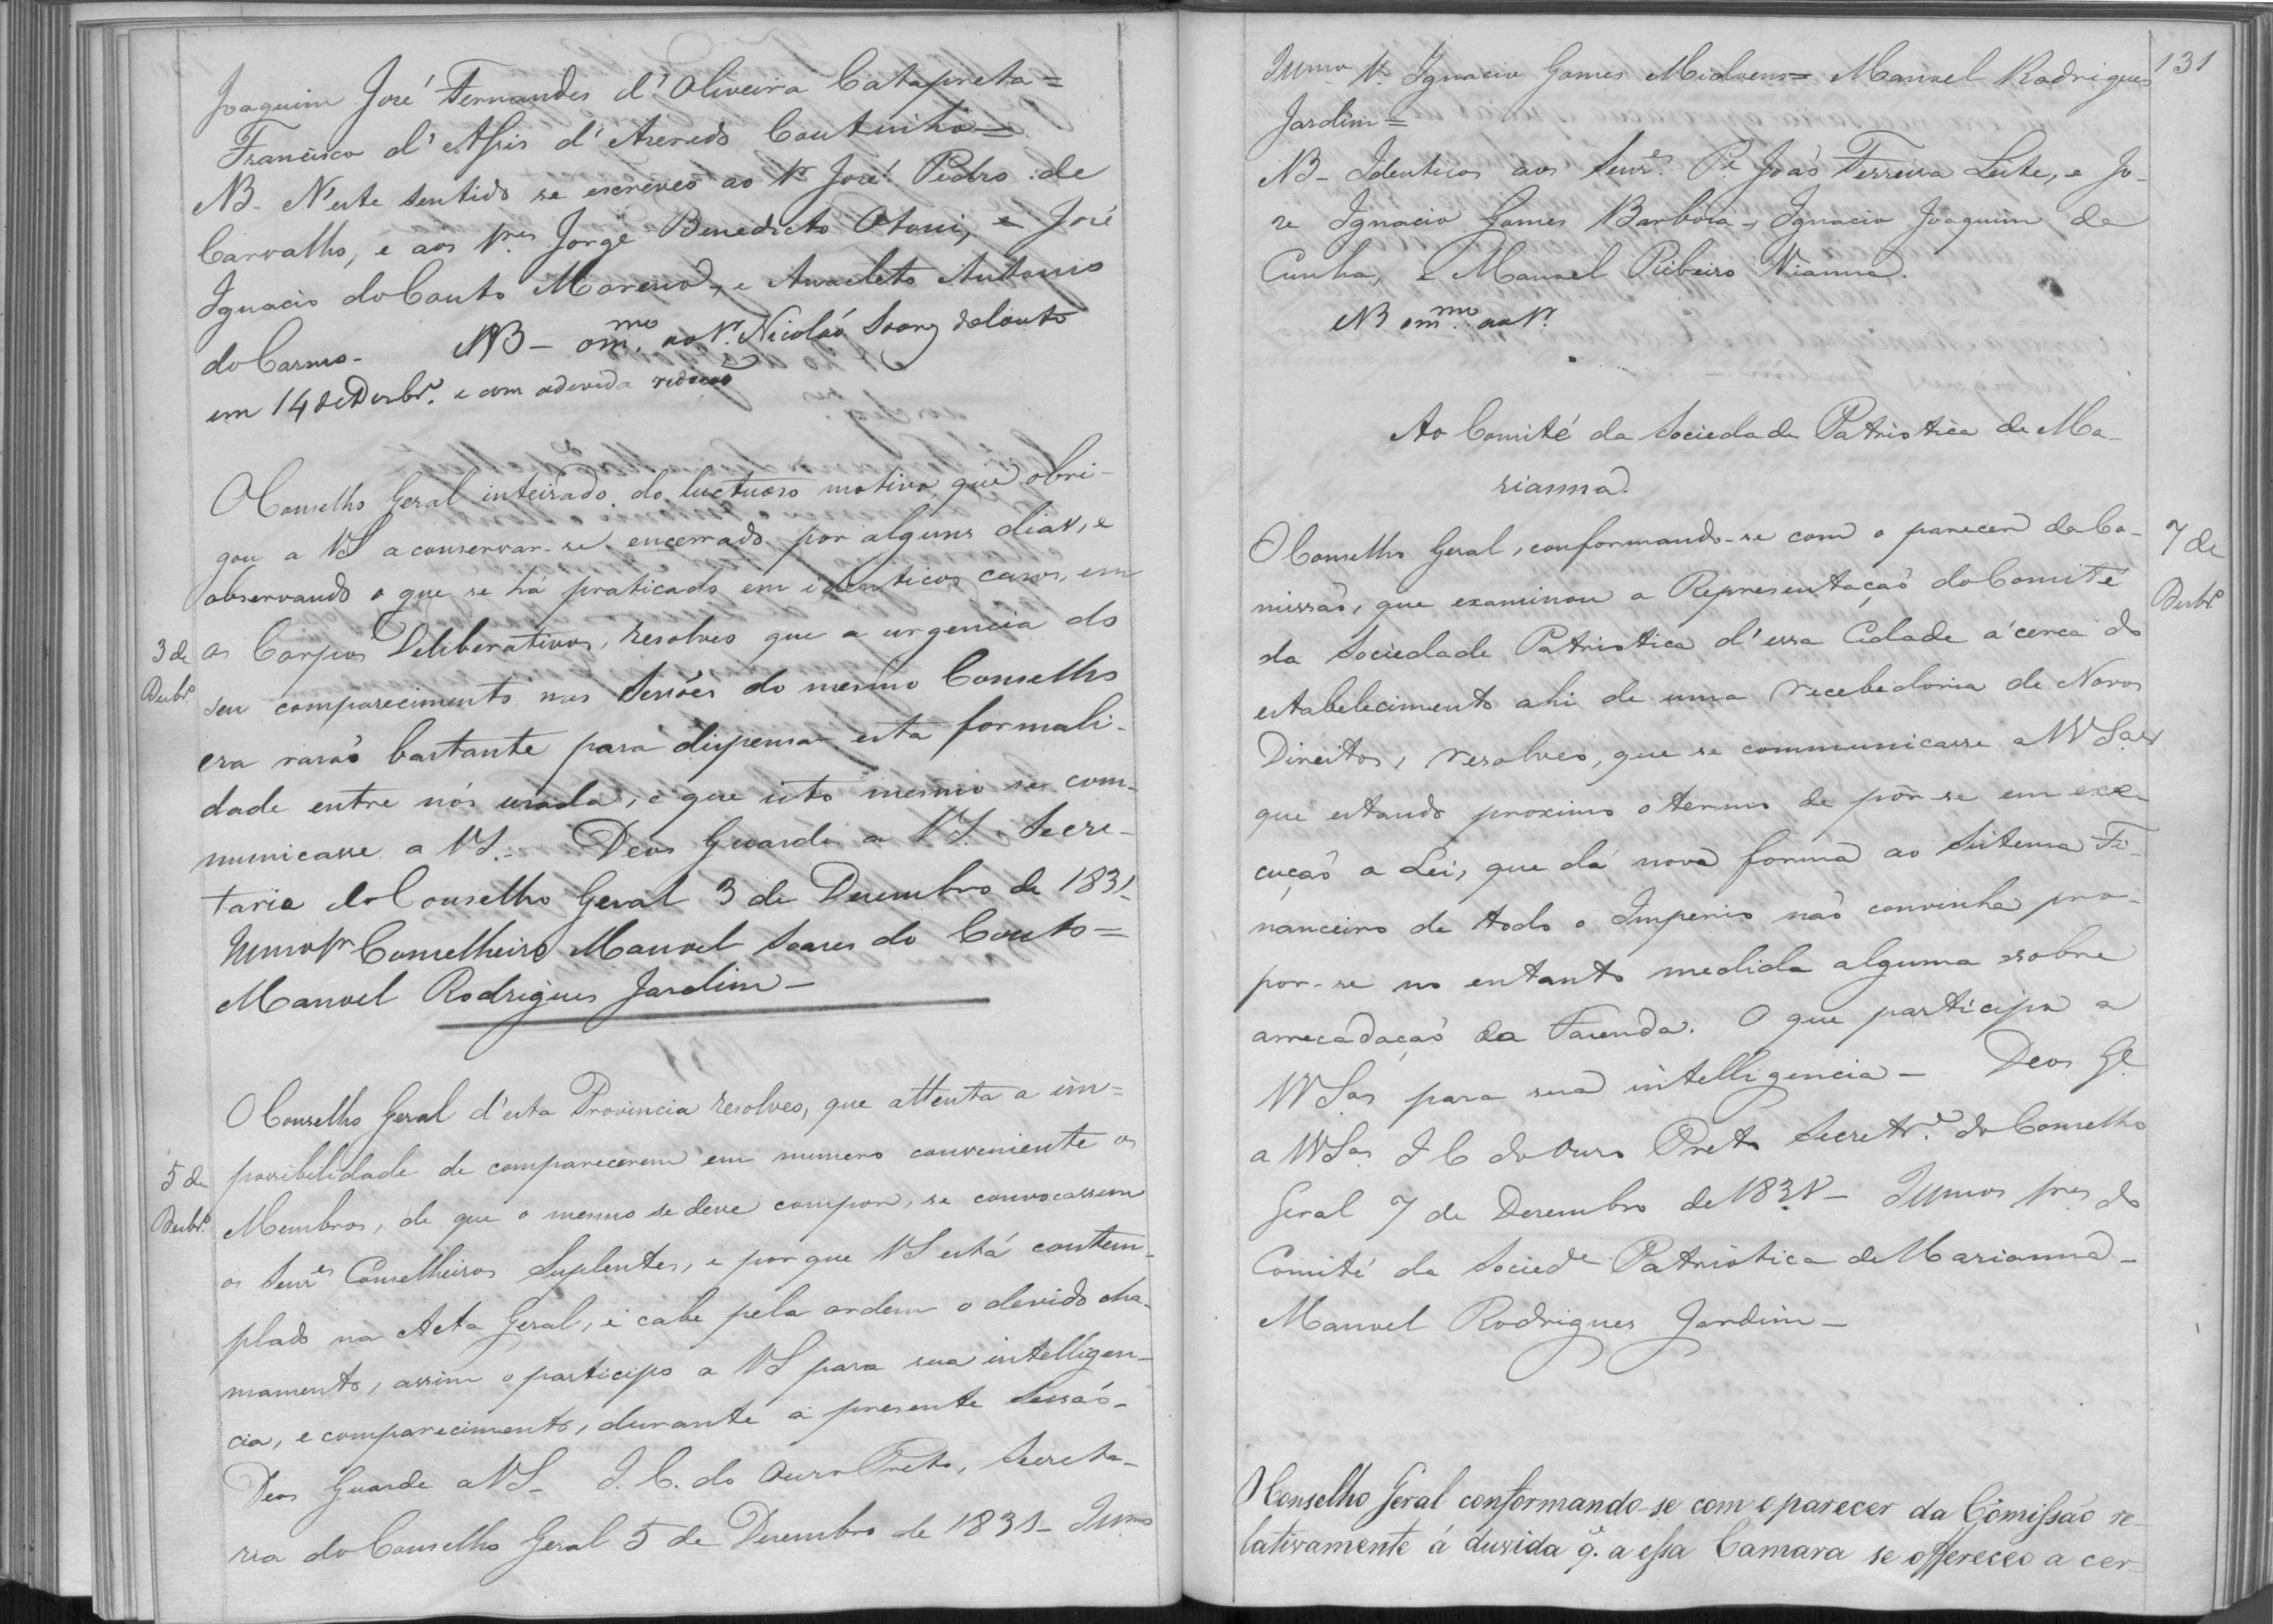 Joaquim José Fernandes d'Oliveira Catapreta=
Francisco d'Assis d'Azeredo Coutinho=
NB- N'este sentido se escreveo ao Sr José Pedro de
Carvalho, e aos Sres Jorge Benedicto Otoni, e José
Ignacio do Couto Moreno, e Anacleto Antonio
do Carmo- NB- o mmo. ao Sr. Nicoláo Soarz do Couto
em 14 de Dezbr.o e com a devida redacçaõ
O Conselho Geral inteirado do luctuoso motivo, que obri-
gou a VS a conservar-se encerrado por alguns dias, e
observando o que se há praticado em identicos casos, em
3 de
Dezbr.o
os Corpos Deliberativos, resolveo que a urgencia do
seu comparecimento nas Sessões do mesmo Conselho
era rasaõ bastante para dispensar esta formali-
dade entre nós usada, e que isto mesmo se com-
municasse a VS.- Deos Guarde a VS. Secre-
taria do Conselho Geral 3 de Dezembro de 1831
Illmo Sr Conselheiro Manoel Soares do Couto=
Manoel Rodrigues Jardim-
O Conselho Geral d'esta Provincia resolveo, que attenta a im=
possibilidade de comparecerem em numero conveniente os
5 de
Dezbr.o
Membros, de que o mesmo se deve compor, se convocassem
os Senres Conselheiros Suplentes, e porque VS está contem-
plado na Acta Geral, e cabe pela ordem o devido cha-
mamento, assim o participo a VS para sua intelligen-
cia, e comparecimento, durante a presente Sessaõ-
Deos Guarde a VS- I. C. do Ouro Preto, Secreta-
ria do Conselho Geral 5 de Dezembro de 1831- Illmo
131
Illmo Sr. Ignacio Gomes Midoens= Manoel Rodrigues
Jardim=
NB- Identicos aos Senres. Pe. João Ferreira Leite, e Jo-
ze Ignacio Gomes Barbosa, Ignacio Joaquim da
Cunha, e Manoel Ribeiro Vianna.
NB o mmo. ao Sr.
Ao Comité da Sociedade Patriotica de Ma-
rianna.
O Conselho Geral, conformando-se com o parecer da Co-
7 de
Dezbr.o
missaõ, que examinou a Representaçaõ do Comité
da Sociedade Patriotica d'essa Cidade á cerca do
estabelecimento ahi de uma recebedoria de Novos
Direitos, resolveo, que se communicasse a VVSas
que estando proximo o termo de pôr-se em exe-
cuçaõ a Lei, que dá nova forma ao Sistema Fi-
nanceiro de todo o Imperio naõ convinha pro-
por-se no entanto medida alguma sobre
arrecadaçaõ da Fazenda. O que participo a
VVSas para sua intelligencia- Deos Ge.
a VVSas I C do Ouro Preto Secretr.a do Conselho
Geral 7 de Dezembro de 1831- Illmos Sres. do
Comité da Sociede Patriotica de Marianna-
Manoel Rodrigues Jardim-
O Conselho Geral conformando-se com o parecer da Comissaõ re-
lativamente á duvida q. a essa Camara se offereceo a cer-